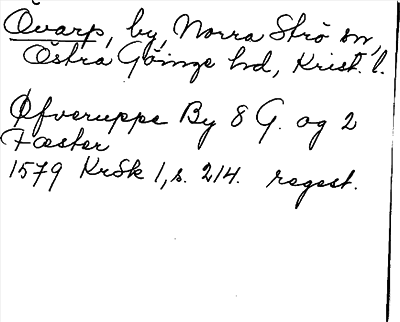 Övarp, by, Norra Strö sn,
Östra Göinge hd, Krist. l.
Øfveruppe By 8 G. og 2
Fæster
1579 KrSk 1, s. 214. regest.